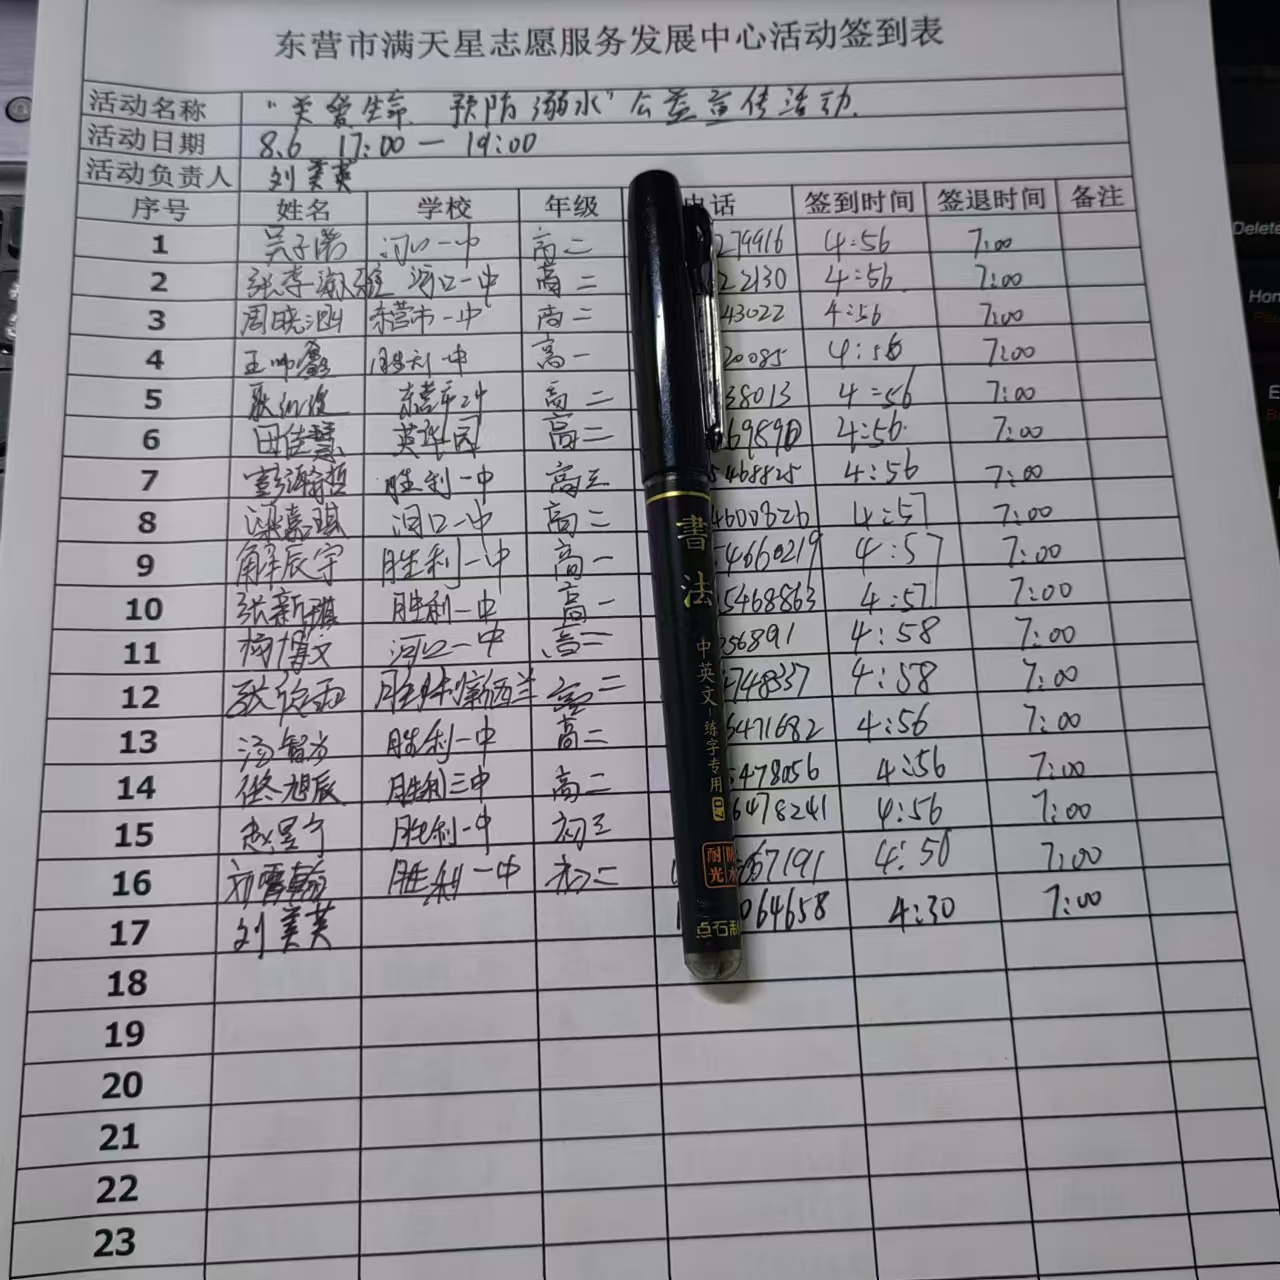 东营市满天星志愿服务发展中心活动签到表
活动名称 "关爱生命 预防溺水"公益宣传活动.
活动日期 8.6 17:00 — 19:00
活动负责人 刘美英
序号 姓名 学校 年级 电话 签到时间 签退时间 备注
1 河口一中 高二 279916 4:56 7:00
2 河口一中 高二 22130 4:56 7:00
3 东营市一中 高二 43022 4:56 7:00
4 胜利一中 高一 20085 4:56 7:00
5 高二 38013 4:56 7:00
6 田佳慧 英华园 高二 69890 4:56 7:00
7 彭瀚哲 胜利一中 高三 5468825 4:56 7:00
8 梁嘉琪 河口一中 高二 4600826 4:57 7:00
9 解辰宇 胜利一中 高一 4660219 4:57 7:00
10 张新琪 胜利一中 高一 5468863 4:57 7:00
11 杨博文 河口一中 高二 256891 4:58 7:00
12 高二 748337 4:58 7:00
13 汤智方 胜利一中 高二 5471682 4:56 7:00
14 佟旭辰 胜利三中 高二 5478056 4:56 7:00
15 赵昱宁 胜利一中 初三 6478241 4:56 7:00
16 胜利一中 初二 67191 4:56 7:00
17 刘美英 064658 4:30 7:00
18
19
20
21
22
23
書法
中英文-练字专用
0.7
耐光
防水
点石制
Delete